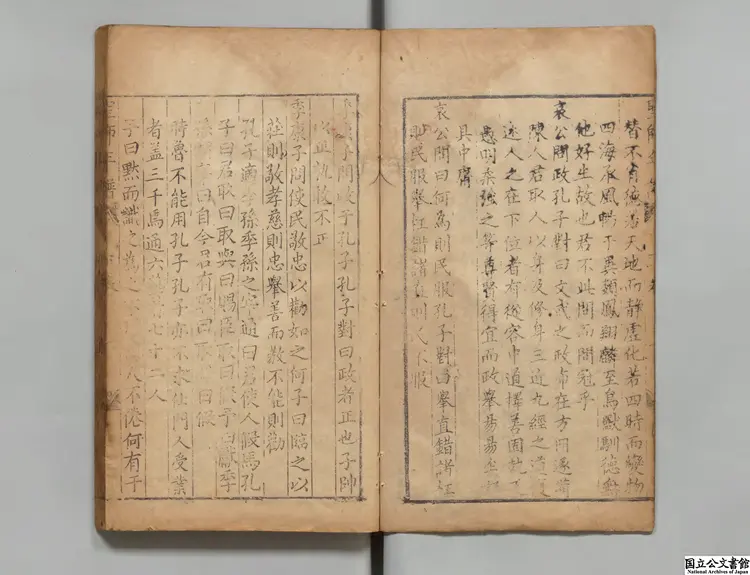 替不肖德若天地而静虚化若四時而變物
四海承風暢于異類鳳翔麟至鳥獸馴德無
他好生故也君不此問而問冠乎
哀公問政孔子對曰文武之政布在方冊遂言
人君取人以身及修身三達九經之道
人之在下位者有從容中道擇善固執之
愚明柔強之等尊賢得宜而政舉易易
具中庸
哀公問曰何為則民服孔子對曰舉直錯諸枉
則民服舉枉錯諸直則民不服
季康子問政于孔子孔子對曰政者正也子帥
以正孰敢不正
季康子問使民敬忠以勸如之何子曰臨之以
莊則敬孝慈則忠舉善而教不能則勸
孔子適季孫季孫之宰通曰君使人假馬孔
子曰君取曰取與曰賜臣取曰假予曰獻季
孫曰自今君有取曰取曰假
時魯不能用孔子孔子亦不求仕門人受業
者盖三千焉通六藝者七十二人
子曰黙而識之為之不人不倦何有于
国立公文書館
National Archives of Japan